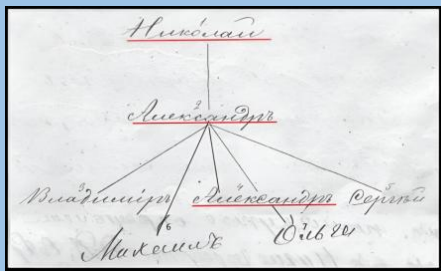 Николай
2
Александръ
Владиміръ Александръ Сергѣй
6
Михаилъ Ольга